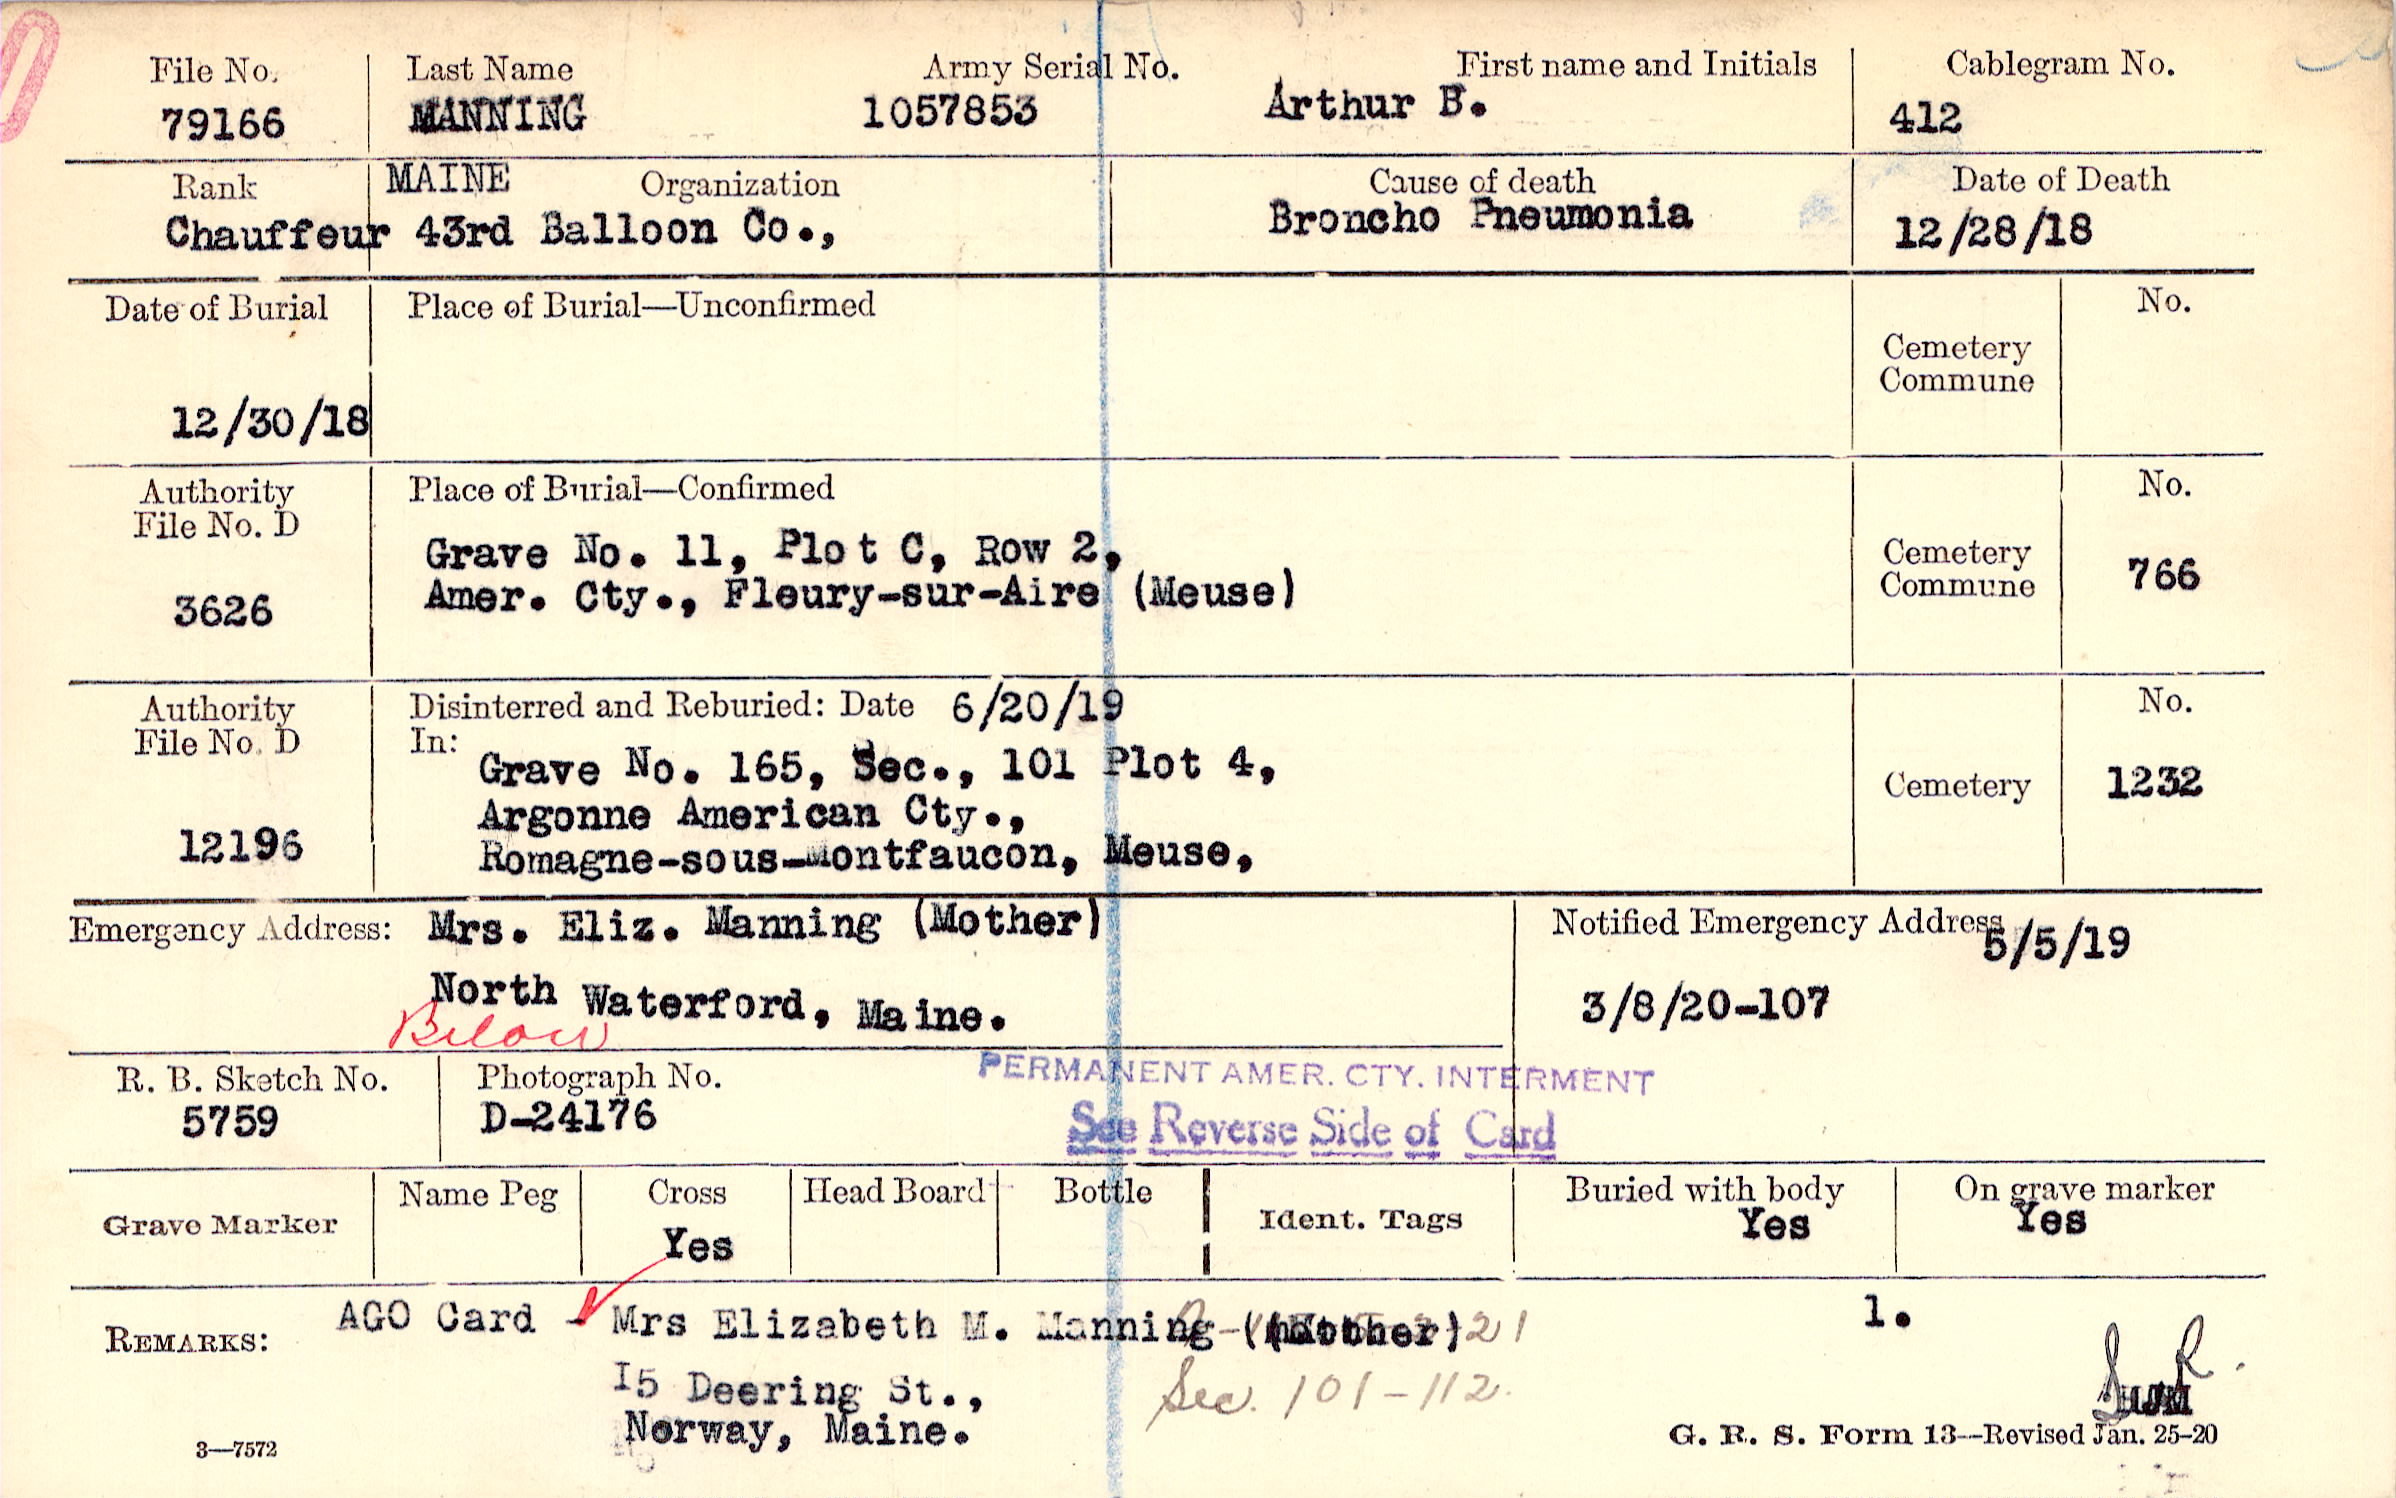 File No. Last Name Army Serial No. First name and Initials Cablegram No.
79166 MANNING 1057853 Arthur B. 412
Rank MAINE Organization Cause of death Date of Death
Chauffeur 43rd Balloon Co., Broncho Pneumonia 12/28/18
Date of Burial Place of Burial—Unconfirmed No.
Cemetery
Commune
12/30/18
Authority Place of Burial—Confirmed No.
File No. D
Grave No. 11, Plot C, Row 2, Cemetery
Amer. Cty., Fleury-sur-Aire (Meuse) Commune 766
3626
Authority Disinterred and Reburied: Date 6/20/19 No.
File No. D In:
Grave No. 165, Sec., 101 Plot 4,
Argonne American Cty., Cemetery 1232
12196 Romagne-sous-Montfaucon, Meuse,
Emergency Address: Mrs. Eliz. Manning (Mother) Notified Emergency Address 5/5/19
North Waterford, Maine. 3/8/20-107
Below
R. B. Sketch No. Photograph No. PERMANENT AMER. CTY. INTERMENT
5759 D-24176 See Reverse Side of Card
Grave Marker Name Peg Cross Head Board Bottle Ident. Tags Buried with body On grave marker
Yes Yes Yes
REMARKS: AGO Card - Mrs Elizabeth M. Manning (Mother) 21 1.
15 Deering St., Sec. 101-112.
Norway, Maine.
S R.
HJM
3—7572 G. R. S. Form 13—Revised Jan. 25-20